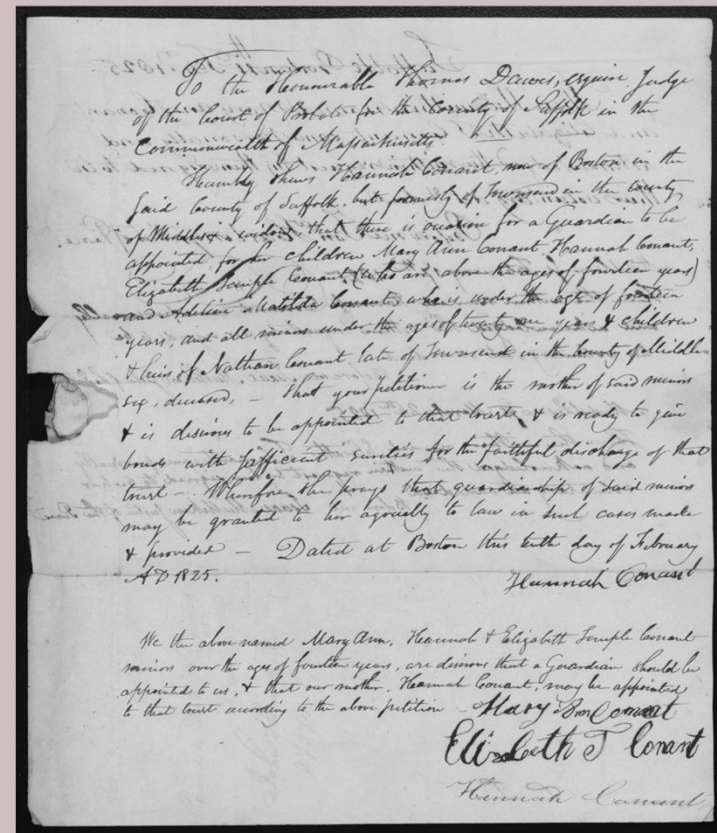 To the Honourable Thomas Dawes, esquire Judge
of the Court of Probate for the County of Suffolk in the
Commonwealth of Massachusetts.
Humbly Shews Hannah Conant, now of Boston in the
said County of Suffolk, but formerly of Townsend in the County
of Middlesex widow that there is occasion for a Guardian to be
appointed for her children Mary Ann Conant, Hannah Conant,
Elizabeth Temple Conant, (who are above the ages of fourteen years)
and Adeline Matilda Conant, who is under the age of fourteen
years, and all minors under the ages of twenty one years & children
& heirs of Nathan Conant late of Townsend in the County of Middle
sex, deceased, — That your petitioner is the mother of said minors
& is desirous to be appointed to that trust, & is ready to give
bonds with sufficient sureties for the faithful discharge of that
trust — Wherefore she prays that guardianship of said minors
may be granted to her agreeably to law in such cases made
& provided — Dated at Boston this tenth day of February
AD 1825.
Hannah Conant
We the above named Mary Ann, Hannah & Elizabeth Temple Conant
minors over the ages of fourteen years, are desirous that a Guardian should be
appointed to us, & that our mother, Hannah Conant, may be appointed
to that trust according to the above petition — Mary Ann Conant
Elizabeth T Conant
Hannah Conant